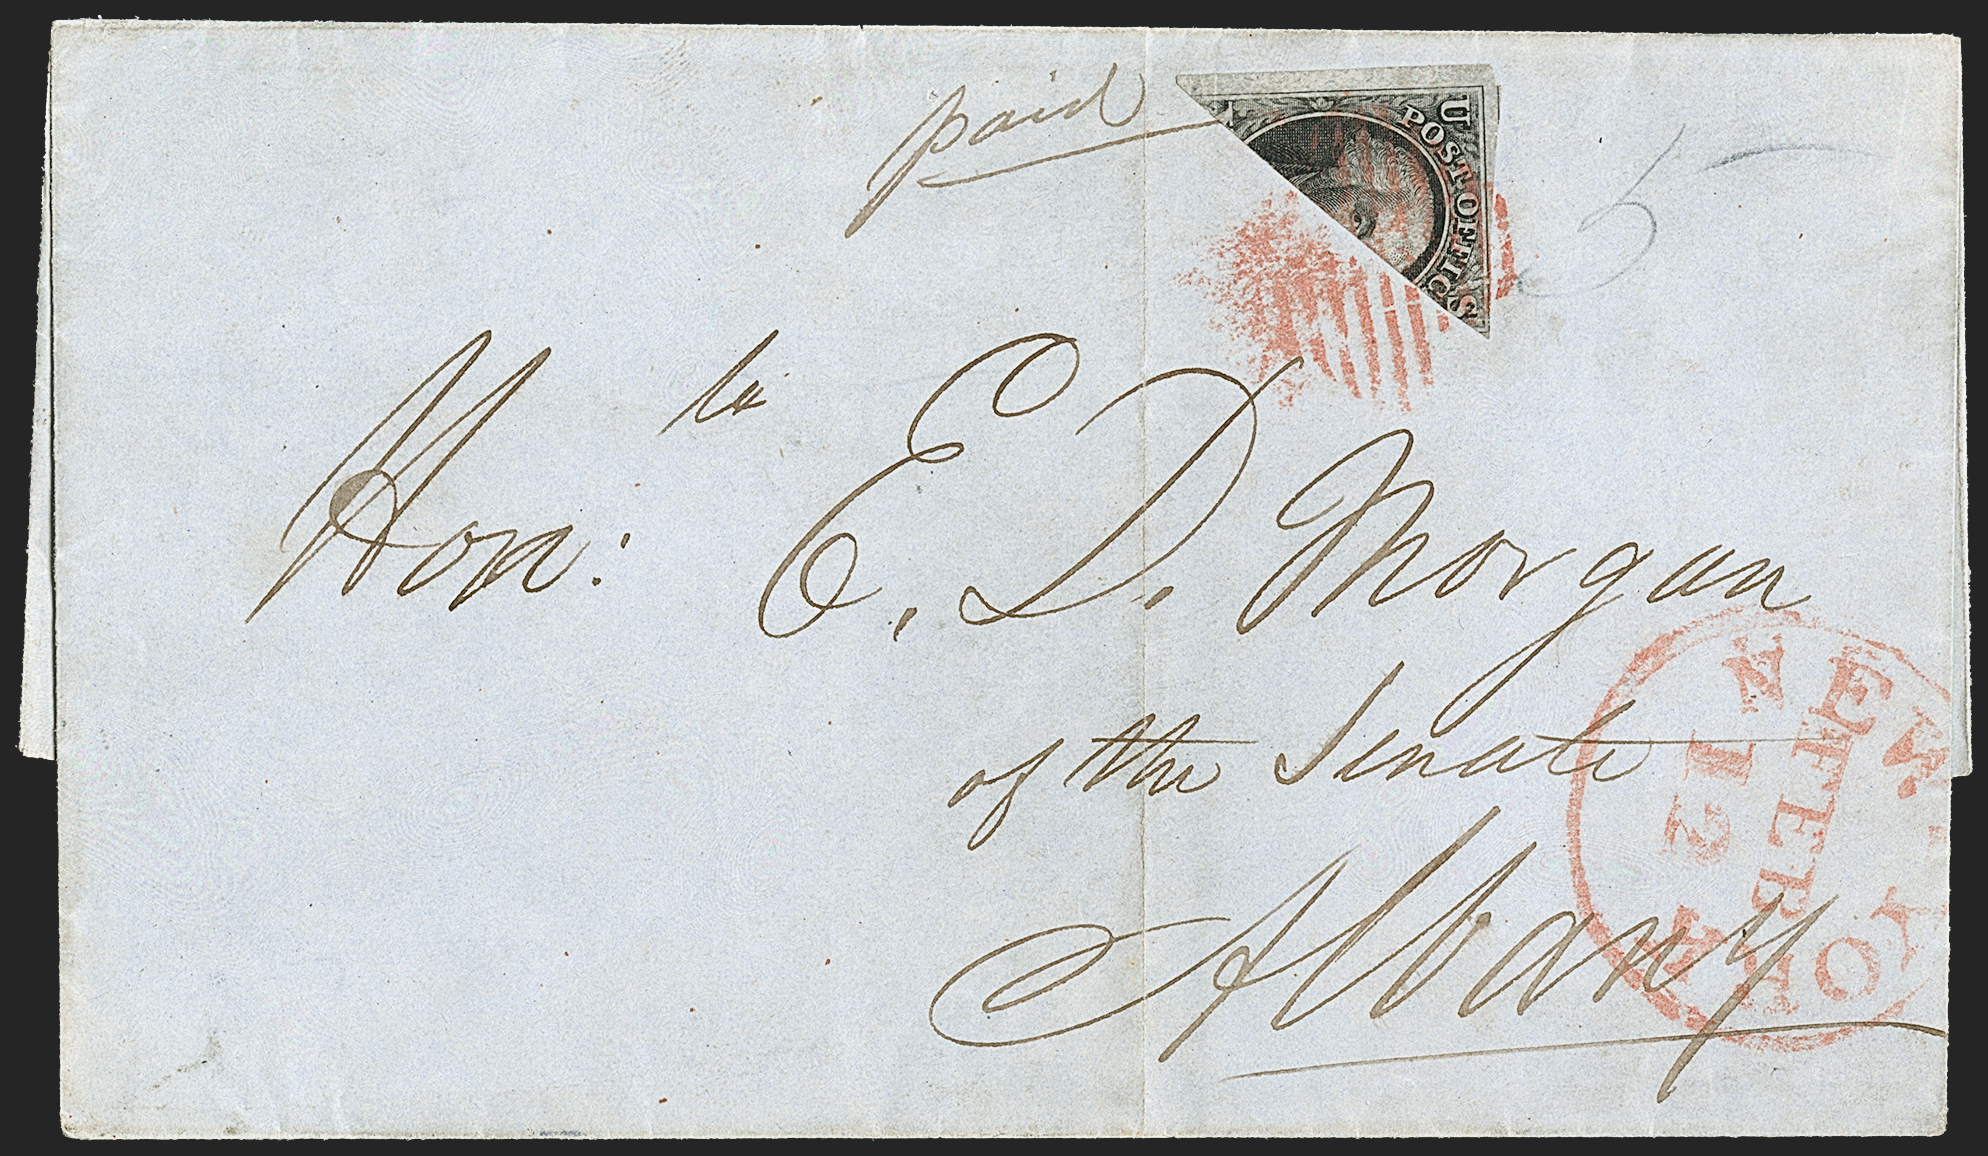 paid
U
POST OFFIC
S
5
to
Hon: E. D. Morgan
of the Senate
Albany
NEW YORK
FEB
12